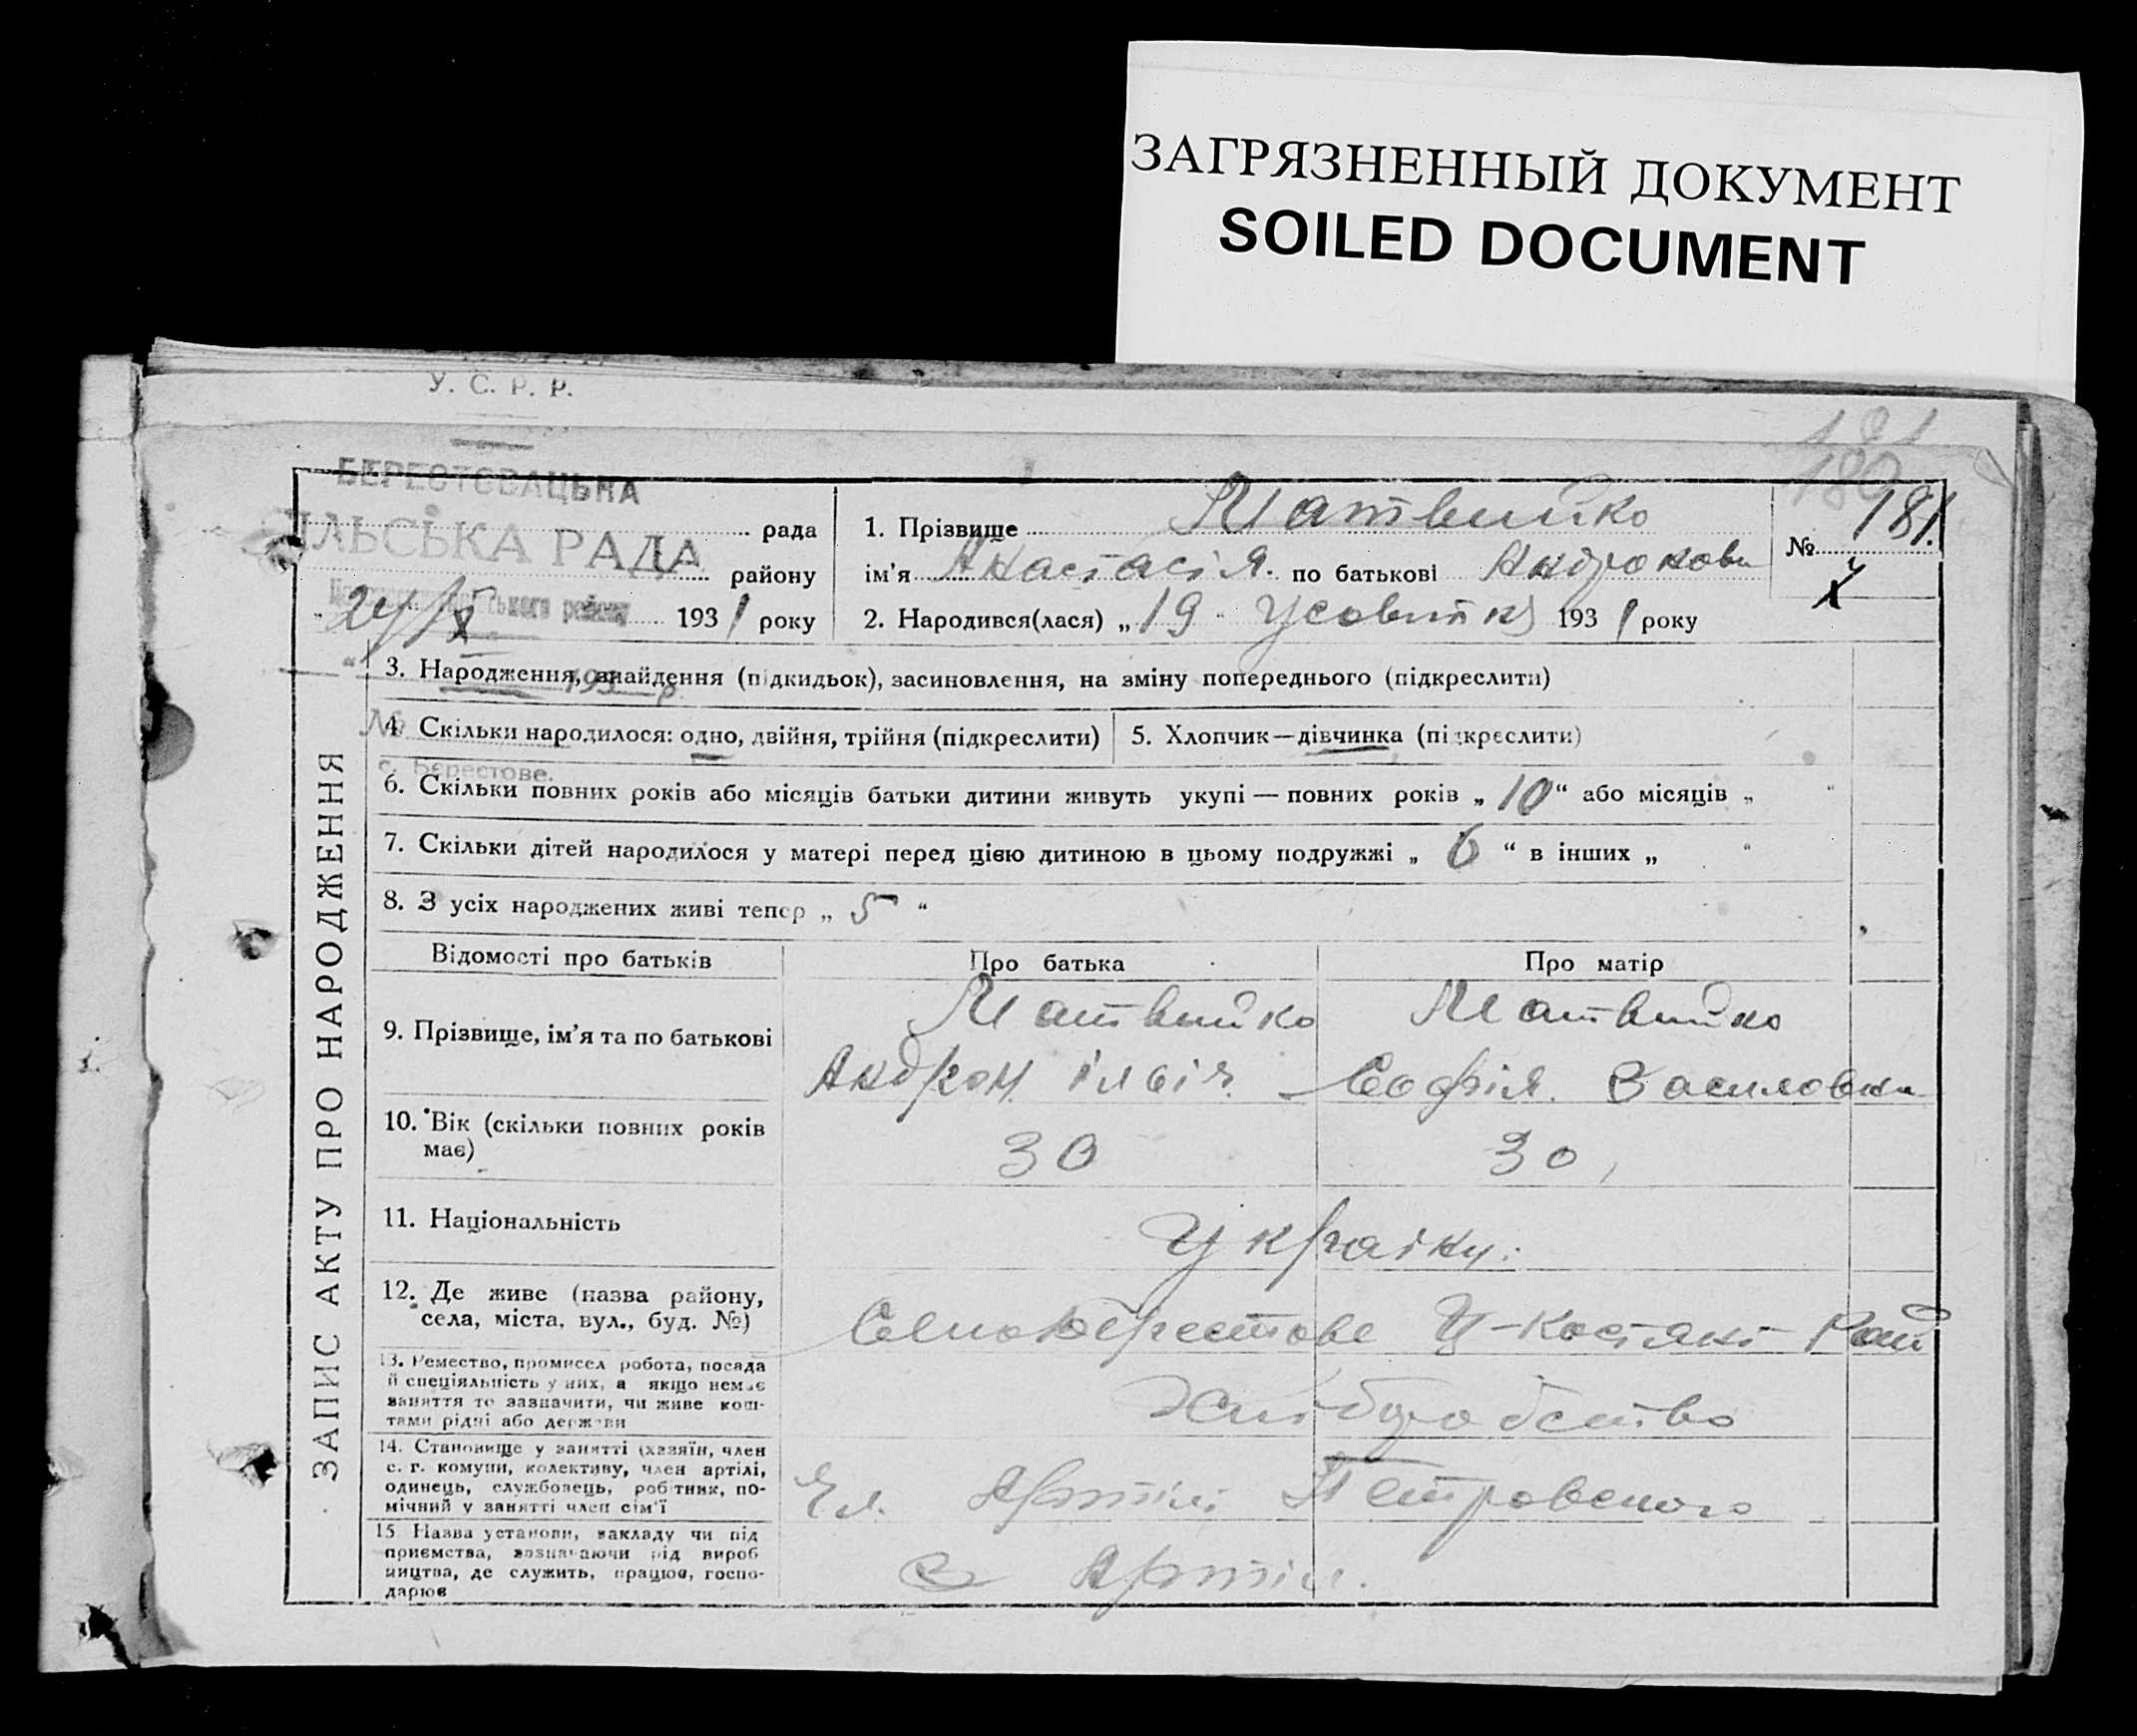 ЗАГРЯЗНЕННЫЙ ДОКУМЕНТ
SOILED DOCUMENT
У. С. Р. Р.
181
180
БЕРЕСТОВАЦЬКА
рада
ІЛЬСЬКА РАДА
району
24/X 1931 року
193 р.
№
с. Берестове.
1. Прізвище Матвийко
ім'я Анастасія. по батькові Андронови
2. Народився(лася) „19“ 1931 року
№ 181.
ЗАПИС АКТУ ПРО НАРОДЖЕННЯ
3. Народження, знайдення (підкидьок), засиновлення, на зміну попереднього (підкреслити)
4. Скільки народилося: одно, двійня, трійня (підкреслити)
5. Хлопчик—дівчинка (підкреслити)
6. Скільки повних років або місяців батьки дитини живуть укупі — повних років „10“ або місяців „ “
7. Скільки дітей народилося у матері перед цією дитиною в цьому подружжі „6“ в інших „ “
8. З усіх народжених живі тепер „5“
Відомості про батьків
Про батька
Про матір
9. Прізвище, ім'я та по батькові
Матвийко
Андрон. Ілвія.
Матвийко
Софія. Василовна
10. Вік (скільки повних років
має)
30
30
11. Національність
Україну.
12. Де живе (назва району,
села, міста, вул., буд. №)
Село Берестове Ц-Костянт Рай
13. Ремество, промисел робота, посада
й спеціяльність у них, а якщо немає
заняття то зазначити, чи живе кош-
тами рідні або держави
хлібиробство
14. Становище у занятті (хазяїн, член
с. г. комуни, колективу, член артілі,
одинець, службовець, робітник, по-
мічний у занятті член сім'ї
Чл. Артілі Петровского
15 Назва установи, закладу чи під
приємства, зазначаючи рід вироб
ництва, де служить, працює, госпо-
дарює
в Артіл.